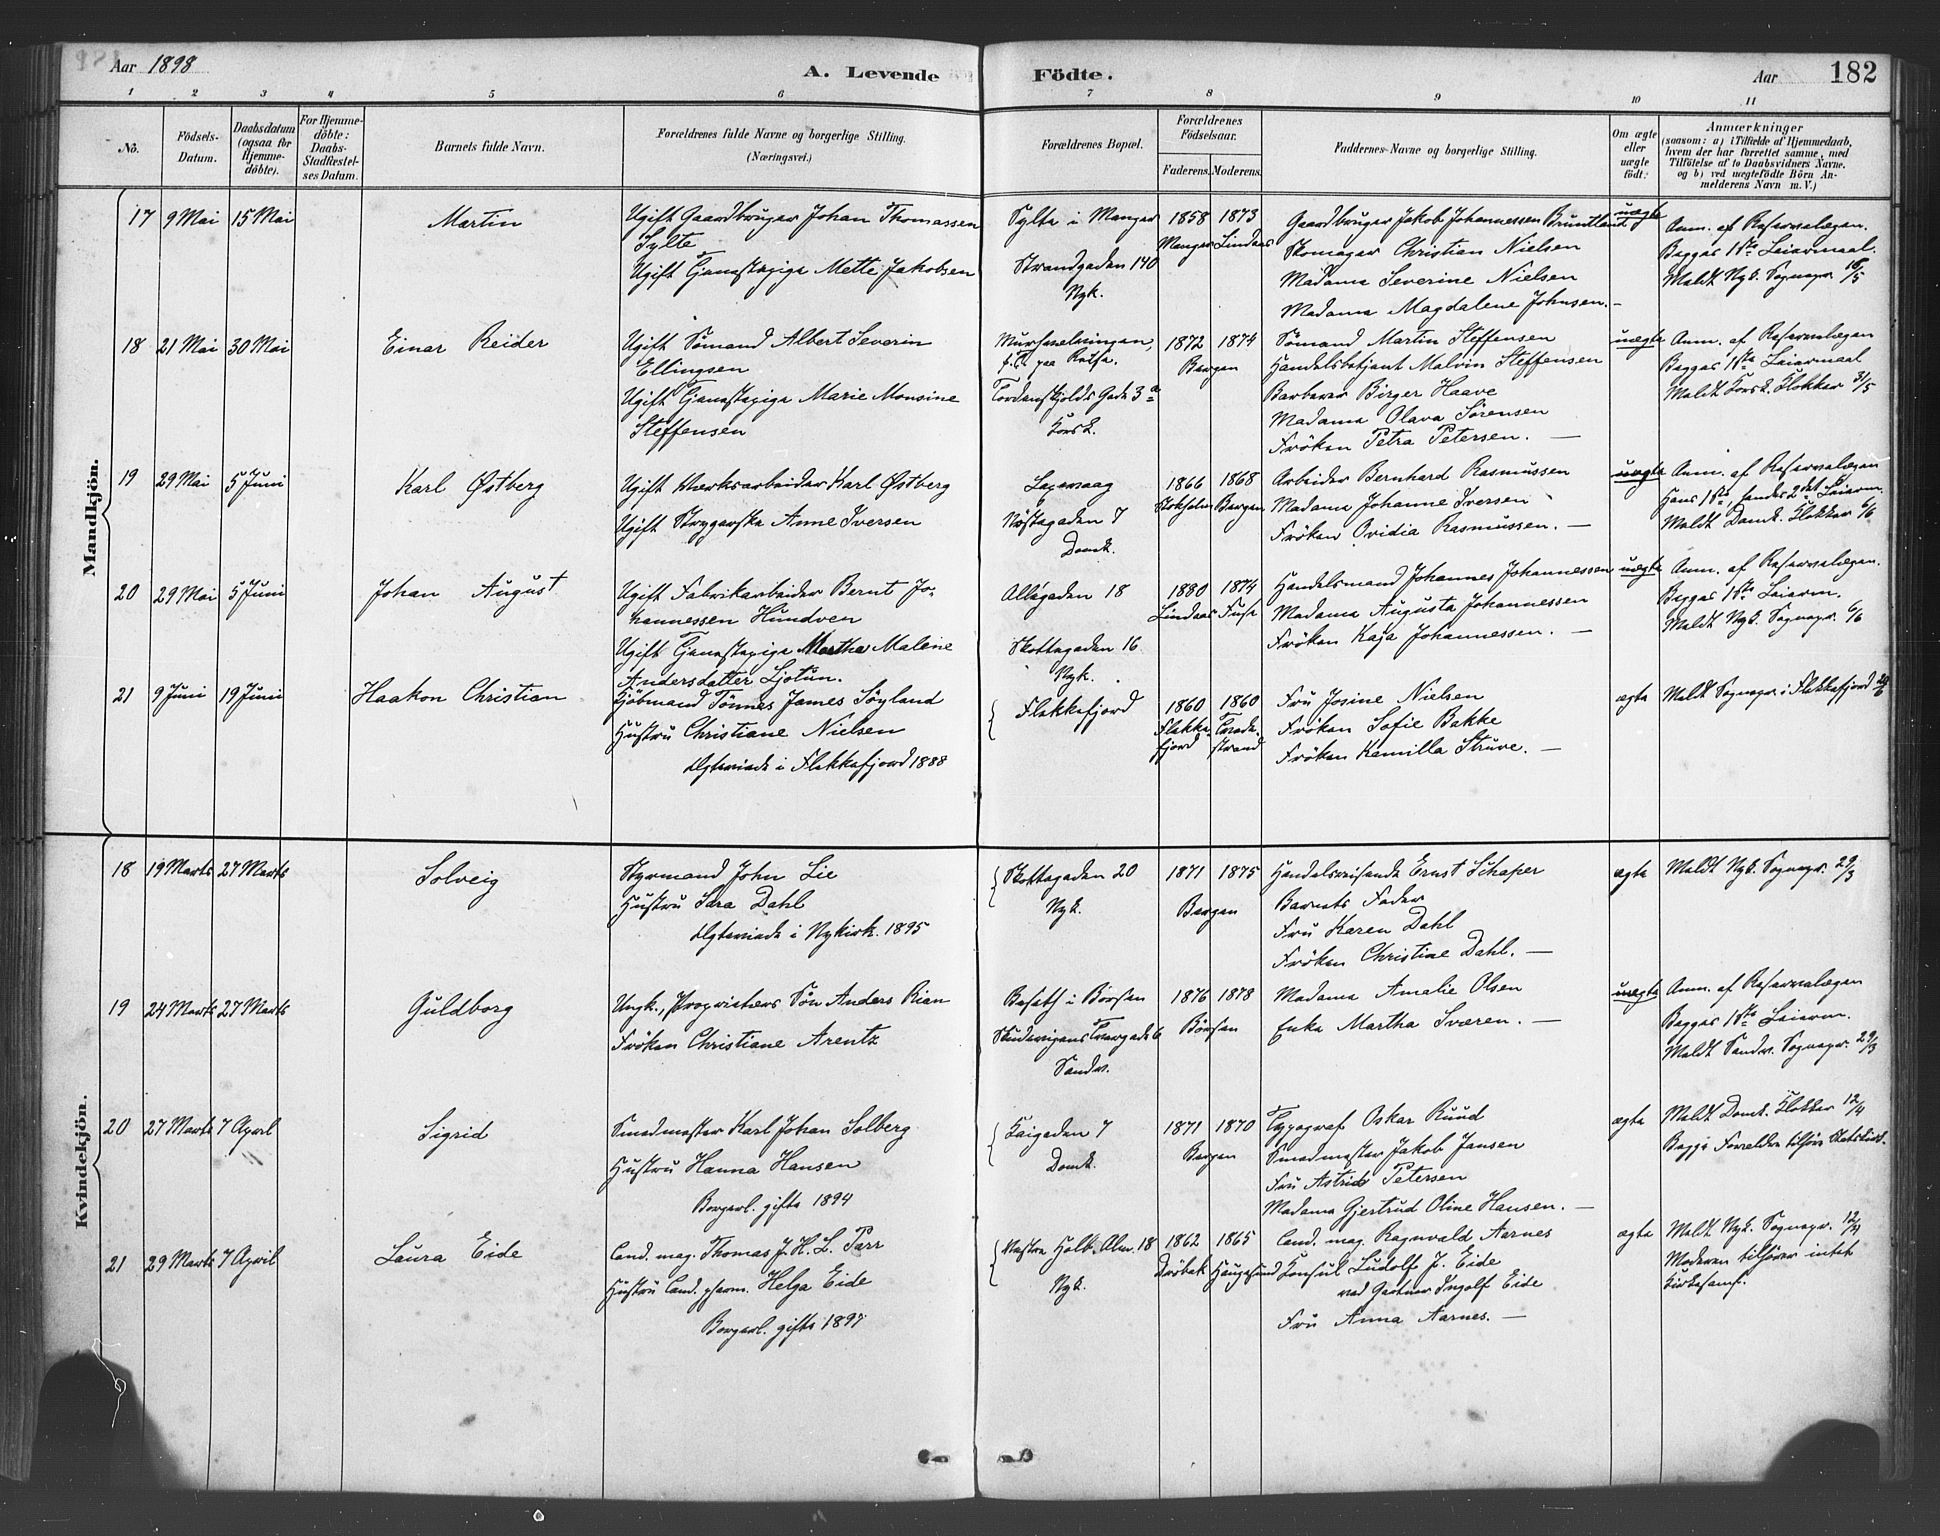 Aar 1898
A. Levende Födte.
Aar 182
1 2 3 4 5 6 7 8 9 10 11
No.
Födsels-Datum.
Daabsdatum (ogsaa for Hjemme-döbte).
For Hjemme-döbte: Daabs-Stadfæstel-ses Datum.
Barnets fulde Navn.
Forældrenes fulde Navne og borgerlige Stilling.
(Næringsvei.)
Forældrenes Bopæl.
Forældrenes Födselsaar.
Faderens. Moderens.
Faddernes Navne og borgerlige Stilling.
Om ægte eller uægte födt.
Anmærkninger
(saasom: a) i Tilfælde af Hjemmedaab,
hvem der har forrettet samme, med
Tilföielse af to Daabsvidners Navne.
og b) ved uægtefödte Börn An-
melderens Navn m. V.)
Mandkjön.
17 9 Mai 15 Mai Martin
Ugift Gaardbruger Johan Thomassen
Sylte
Ugift Tjenestepige Mette Jakobsen
Sylte i Manger
Strandgaden 140
Nyk.
1858 1873
Manger Lindaas
Gaardbruger Jakob Johannessen Bruntland
Skomager Christian Nielsen
Madame Severine Nielsen
Madame Magdalene Johnsen. —
uægte
Anm. af Reservelægen.
Begges 1ste Leiermaal.
Meldt Nyk. Sognepr. 16/5
18 21 Mai 30 Mai Einar Reider
Ugift Sömand Albert Severin
Ellingsen
Ugift Tjenestepige Marie Monsine
Steffensen
p. T. paa Reise.
Tordenskjolds Gade 3a
Korsk.
1872 1874
Bergen
Sömand Martin Steffensen
Handelsbetjent Malvin Steffensen
Barberer Birger Haave
Madame Olava Sörensen
Fröken Petra Petersen. —
uægte
Anm. af Reservelægen
Begges 1ste Leiermaal
Meldt Korsk. Klokker 31/5
19 29 Mai 5 Juni Karl Østberg
Ugift Værksarbeider Karl Østberg
Ugift Strygerske Anne Iversen
Laxevaag
Nöstegaden 7
Domk.
1866 1868
Stokholm Bergen
Arbeider Bernhard Rasmussen
Madame Johanne Iversen
Fröken Ovidia Rasmussen. —
uægte
Anm. af Reservelægen
Hans 1ste, hendes 2det Leierm.
Meldt Domk. Klokker 6/6
20 29 Mai 5 Juni Johan August
Ugift Fabrikarbeider Bernt Jo-
hannessen Hundven
Ugift Tjenestepige Marthe Malene
Andersdatter Ljotun.
Allégaden 18
Skottegaden 16
Nyk.
1880 1874
Lindaas Fuse
Handelsmand Johannes Johannessen
Madame Augusta Johannessen
Fröken Kaja Johannessen. —
uægte
Anm. af Reservelægen.
Begges 1ste Leierm.
Meldt Nyk. Sognepr. 6/6
21 9 Juni 19 Juni Haakon Christian
Kjöbmand Tönnes James Söyland
Hustru Christiane Nielsen
Ægteviede i Flekkefjord 1888
Flekkefjord
1860 1860
Flekke-fjord
Fru Josine Nielsen
Fröken Sofie Bakke
Fröken Kamilla Struve. —
ægte
Meldt Sognepr. i Flekkefjord 20/6
Kvindekjön.
18 19 Marts 27 Marts Solveig
Styrmand John Lie
Hustru Sara Dahl
Ægteviede i Nykirk. 1895
Skottegaden 20
Nyk.
1871 1875
Bergen
Handelsreisende Ernst Schaper
Barnets Fader
Fru Karen Dahl
Fröken Christine Dahl. —
ægte
Meldt Nyk. Sognepr. 29/3
19 24 Marts 27 Marts Guldborg
Ungk., Proprietærs Sön Anders Rian
Fröken Christiane Arentz
Bosath i Börsen
Skudevigens Tværgade 6
Sandv.
1876 1878
Börsen
Madame Amalie Olsen
Enke Martha Sværen. —
uægte
Anm. af Reservelægen
Begges 1ste Leierm.
Meldt Sandv. Sognepr. 29/3
20 27 Marts 7 April Sigrid
Smedmester Karl Johan Solberg
Hustru Hanna Hansen
Borgerl. gifte 1894
Kaigaden 7
Domk.
1871 1870
Bergen
Typograf Oskar Ruud
Smedmester Jakob Jansen
Fru Astrid Petersen
Madame Gjertrud Oline Hansen. —
ægte
Meldt Domk. Klokker 12/4
Begge Forældre tilhöre Statskirk.
21 29 Marts 7 April Laura Eide
Cand. mag. Thomas J. H. L. Parr
Hustru Cand. pharm. Helga Eide
Borgerl. gifte 1897
Nestre Holb. Alm. 18
Nyk.
1862 1865
Dröbak Haugesund
Cand. mag. Ragnvald Aarnes
Konsul Ludolf J. Eide
ved Gartner Ingolf Eide
Fru Anna Aarnes. —
ægte
Meldt Nyk. Sognepr. 12/4
Moderen tilhörer intet
Kirkesamf.